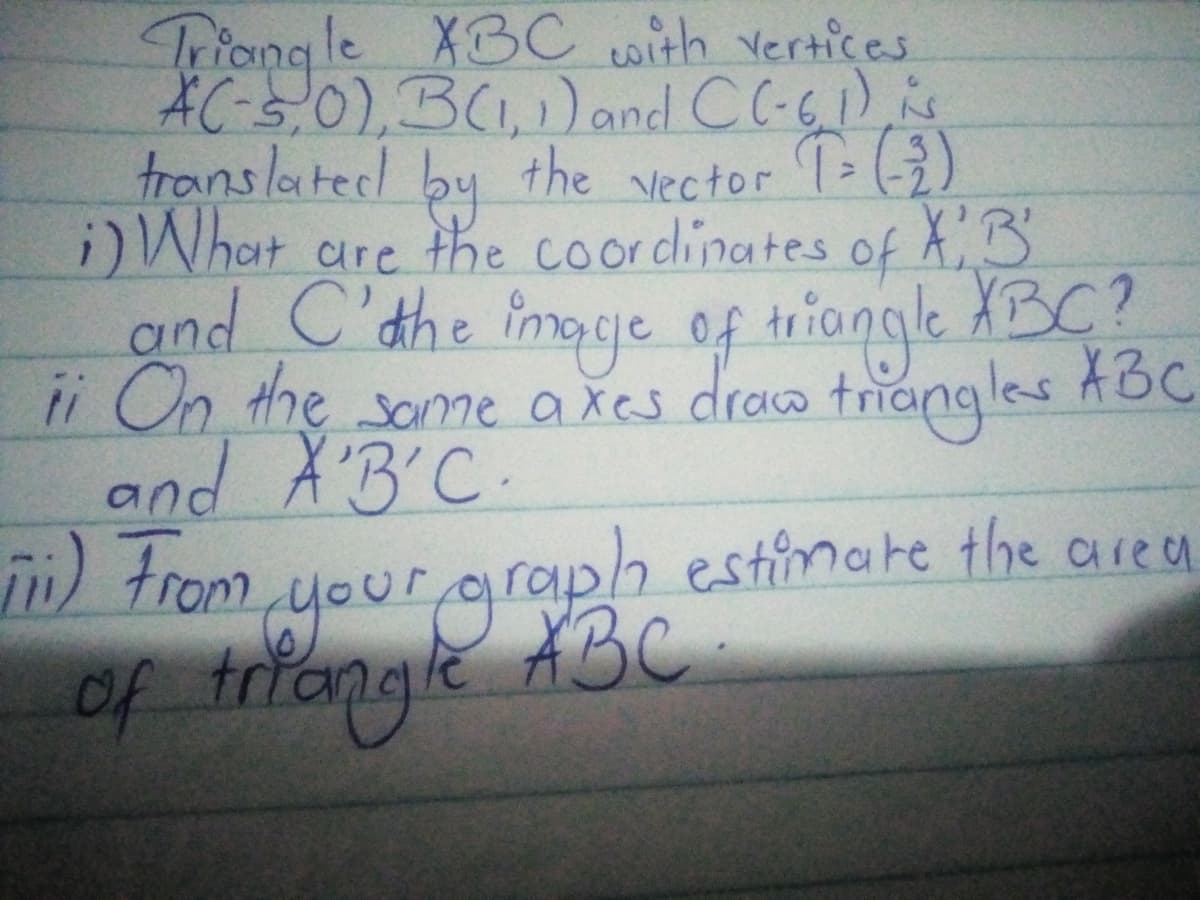 Triangle ABC with vertices
A(-5,0), B(1,1) and C(-6,1) is
translated by the vector T = (3 -2)
i) What are the coordinates of A', B'
and C' the image of triangle ABC?
ii On the same axes draw triangles ABC
and A'B'C.
iii) From your graph estimate the area
of triangle ABC.